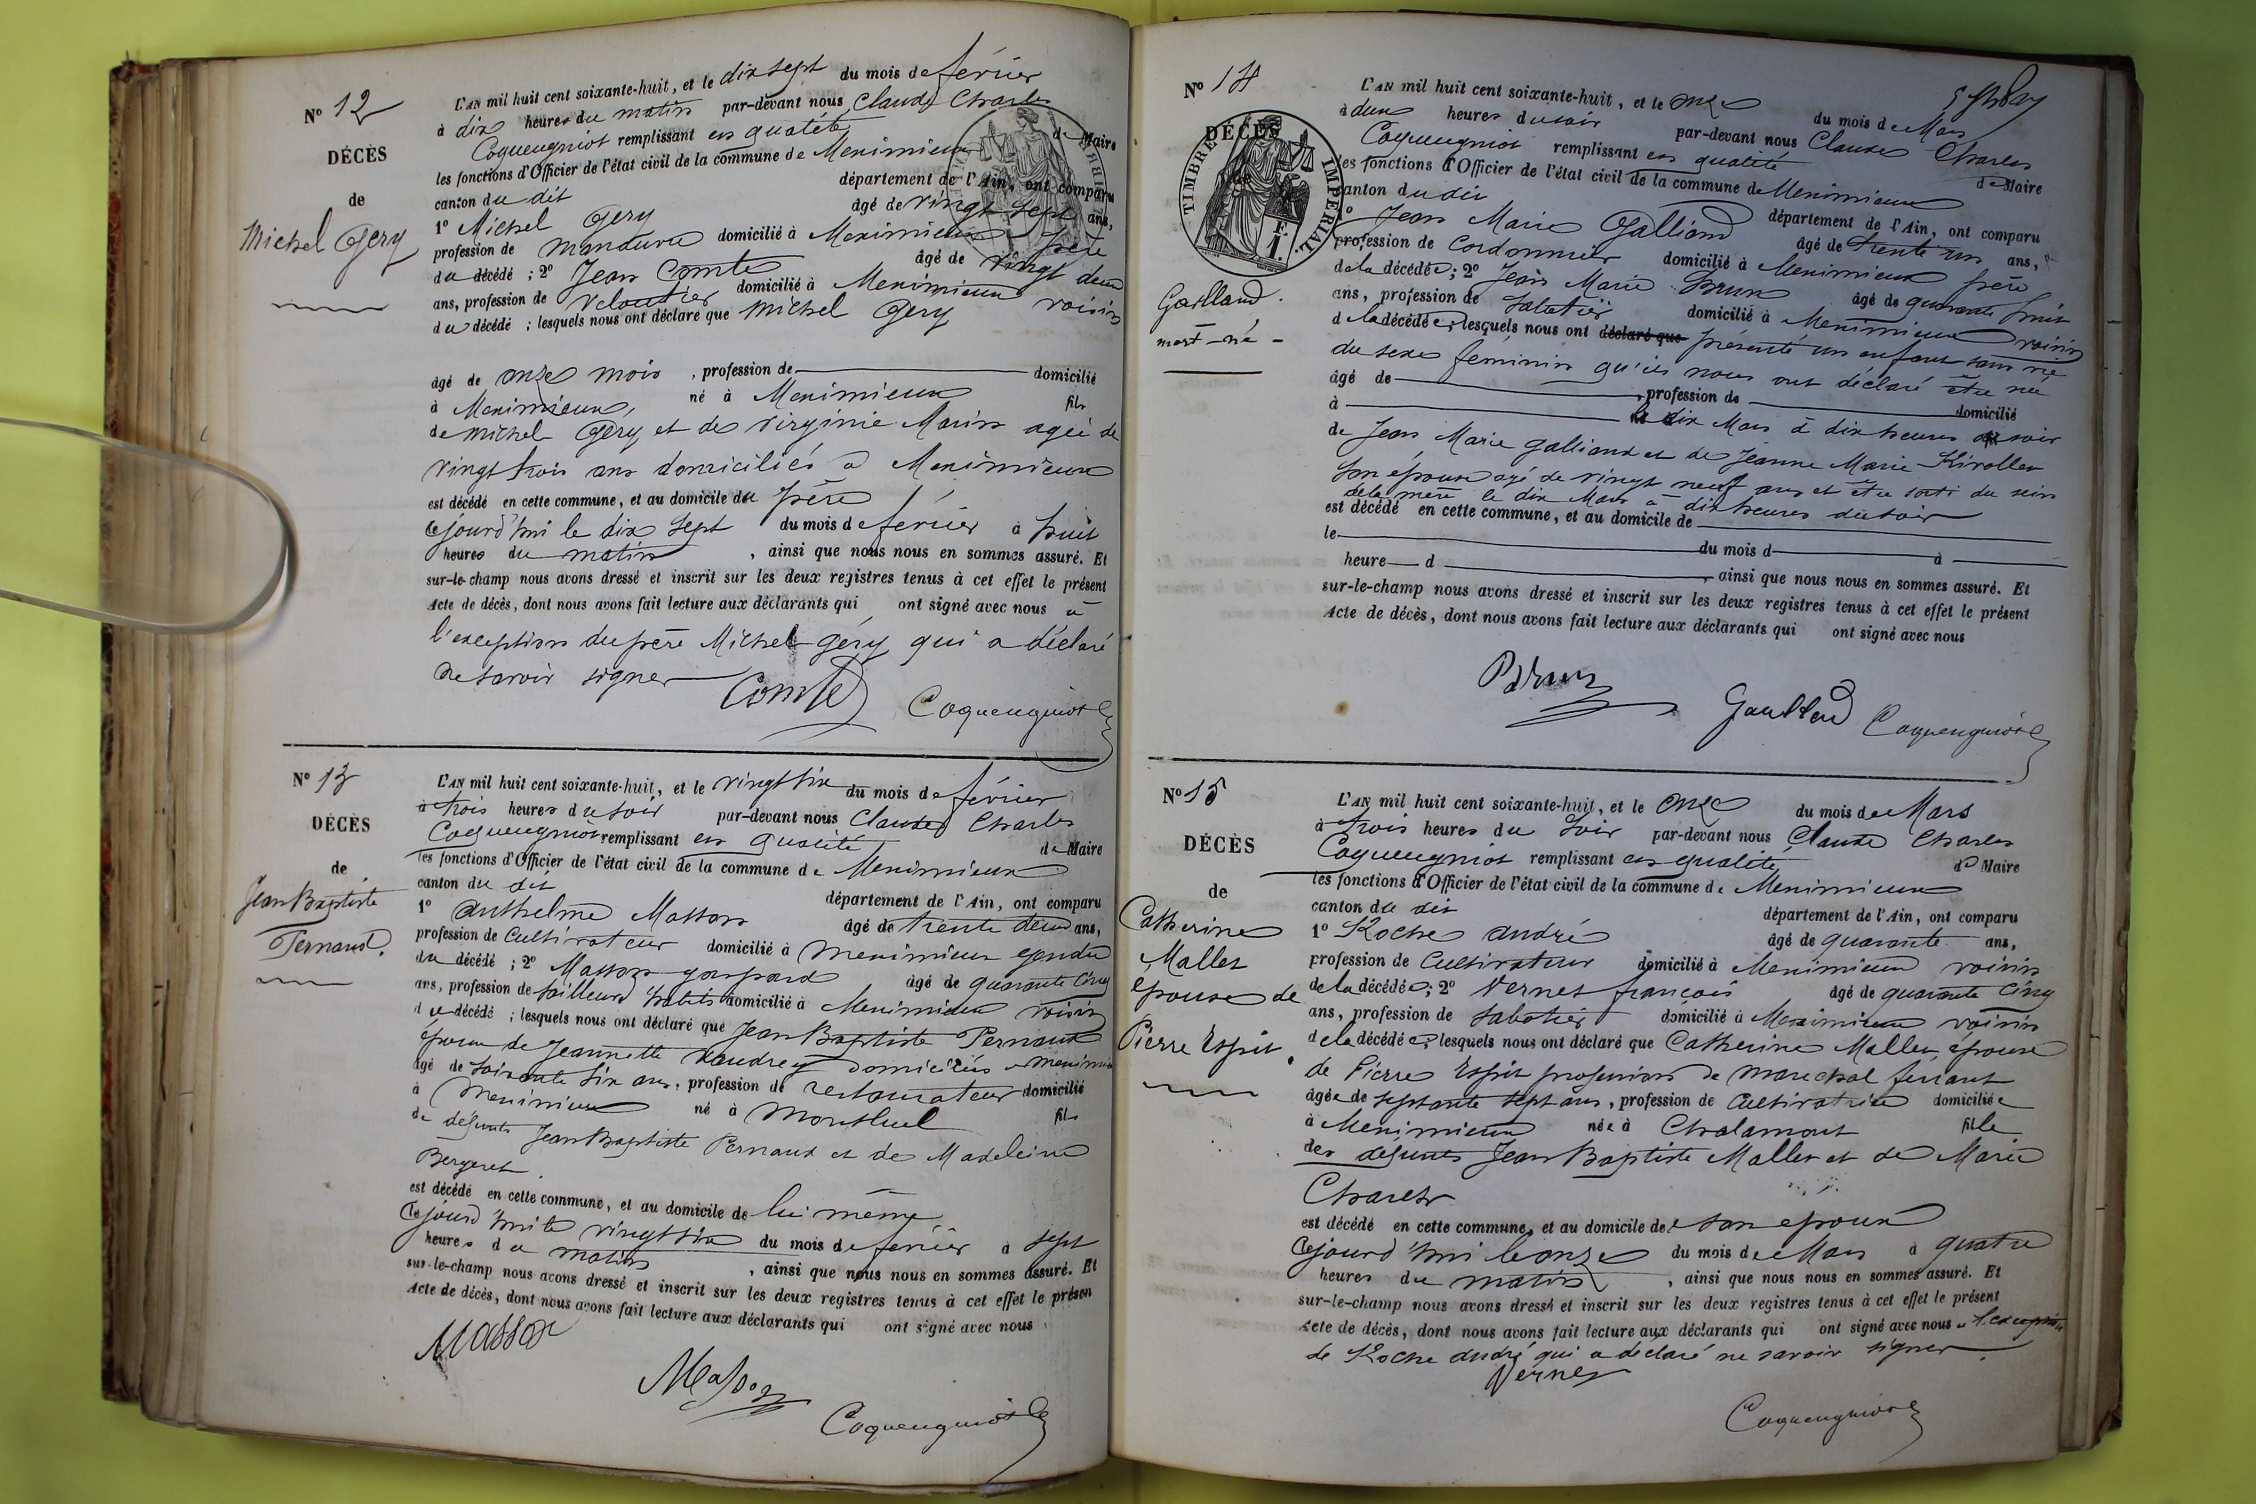 N° 12
DÉCÈS
de
Michel Gery
L'AN mil huit cent soixante-huit, et le dix sept du mois de février
à dix heures du matin par-devant nous Claude Charles
Coqueugniot remplissant en qualité de Maire
les fonctions d'Officier de l'état civil de la commune de Meximieux
canton du dit département de l'Ain, ont comparu
1° Michel Gery âgé de vingt sept ans,
profession de manœuvre domicilié à Meximieux père
du décédé ; 2° Jean Comte âgé de vingt deux
ans, profession de veloutier domicilié à Meximieux voisin
du décédé ; lesquels nous ont déclaré que Michel Gery
âgé de onze mois , profession de domicilié
à Meximieux, né à Meximieux fils
de Michel Gery et de Virginie Marin agée de
vingt trois ans domiciliés à Meximieux
est décédé en cette commune, et au domicile du père
Cejourd'hui le dix sept du mois de février à huit
heures du matin , ainsi que nous nous en sommes assuré. Et
sur-le-champ nous avons dressé et inscrit sur les deux registres tenus à cet effet le présent
Acte de décès, dont nous avons fait lecture aux déclarants qui ont signé avec nous à
l'exception du père Michel Géry qui a déclaré
ne savoir signer
Comte Coqueugniot
N° 13
DÉCÈS
de
Jean Baptiste
Pernaud.
L'AN mil huit cent soixante-huit, et le vingt six du mois de février
à trois heures du soir par-devant nous Claude Charles
Coqueugniot remplissant en qualité de Maire
les fonctions d'Officier de l'état civil de la commune de Meximieux
canton du dit département de l'Ain, ont comparu
1° Anthelme Masson âgé de trente deux ans,
profession de Cultivateur domicilié à Meximieux gendre
du décédé ; 2° Masson gaspard âgé de quarante cinq
ans, profession de tailleur d'habits domicilié à Meximieux voisin
du décédé ; lesquels nous ont déclaré que Jean Baptiste Pernaud
époux de Jeannette domiciliés à Meximieux
âgé de soixante six ans, profession de restaurateur domicilié
à Meximieux né à Montluel fils
de défunts Jean Baptiste Pernaud et de Madeleine
Bergeret
est décédé en cette commune, et au domicile de lui même
Cejourd'hui le vingt six du mois de février à sept
heures du matin , ainsi que nous nous en sommes assuré. Et
sur-le-champ nous avons dressé et inscrit sur les deux registres tenus à cet effet le présen
Acte de décès, dont nous avons fait lecture aux déclarants qui ont signé avec nous
Masson
Masson
Coqueugniot
N° 14
DÉCÈS
de
TIMBRE IMPÉRIAL
1 F.
Galland.
mort-né
L'AN mil huit cent soixante-huit, et le onze du mois de Mars
à deux heures du soir par-devant nous Claude Charles
Coqueugniot remplissant en qualité de Maire
les fonctions d'Officier de l'état civil de la commune de Meximieux
canton du dit département de l'Ain, ont comparu
1° Jean Marie Galliand âgé de trente un ans,
profession de Cordonnier domicilié à Meximieux père
de la décédée ; 2° Jean Marie Brun âgé de quarante huit
ans, profession de sabotier domicilié à Meximieux voisin
de la décédée ; lesquels nous ont déclaré que présenté un enfant sans vie
du sexe féminin qu'ils nous ont déclaré être né
âgé de , profession de domicilié
à le dix Mars à dix heures du soir
de Jean Marie galliand et de Jeanne Marie
son épouse agé de vingt neuf ans et être sorti du sein
de la mère le dix Mars à dix heures du soir
est décédé en cette commune, et au domicile de
le du mois d à
heure d , ainsi que nous nous en sommes assuré. Et
sur-le-champ nous avons dressé et inscrit sur les deux registres tenus à cet effet le présent
Acte de décès, dont nous avons fait lecture aux déclarants qui ont signé avec nous
Brun
Coqueugniot
N° 15
DÉCÈS
de
Catherine
Mallet
épouse de
Pierre Esprit.
L'AN mil huit cent soixante-huit, et le onze du mois de Mars
à trois heures du soir par-devant nous Claude Charles
Coqueugniot remplissant en qualité de Maire
les fonctions d'Officier de l'état civil de la commune de Meximieux
canton du dit département de l'Ain, ont comparu
1° Roche andré âgé de quarante ans,
profession de Cultivateur domicilié à Meximieux voisin
de la décédée ; 2° Vernet françois âgé de quarante cinq
ans, profession de sabotier domicilié à Meximieux voisin
de la décédée ; lesquels nous ont déclaré que Catherine Mallet, épouse
de Pierre Esprit profession de marechal feriant
âgée de septante sept ans, profession de Cultivatrice domiciliée
à Meximieux née à Chalamont fille
des défunts Jean Baptiste Mallet et de Marie
est décédé en cette commune, et au domicile de son époux
Cejourd'hui le onze du mois de Mars à quatre
heures du matin , ainsi que nous nous en sommes assuré. Et
sur-le-champ nous avons dressé et inscrit sur les deux registres tenus à cet effet le présent
Acte de décès, dont nous avons fait lecture aux déclarants qui ont signé avec nous à l'exception
de Roche andré qui a déclaré ne savoir signer.
Vernet
Coqueugniot